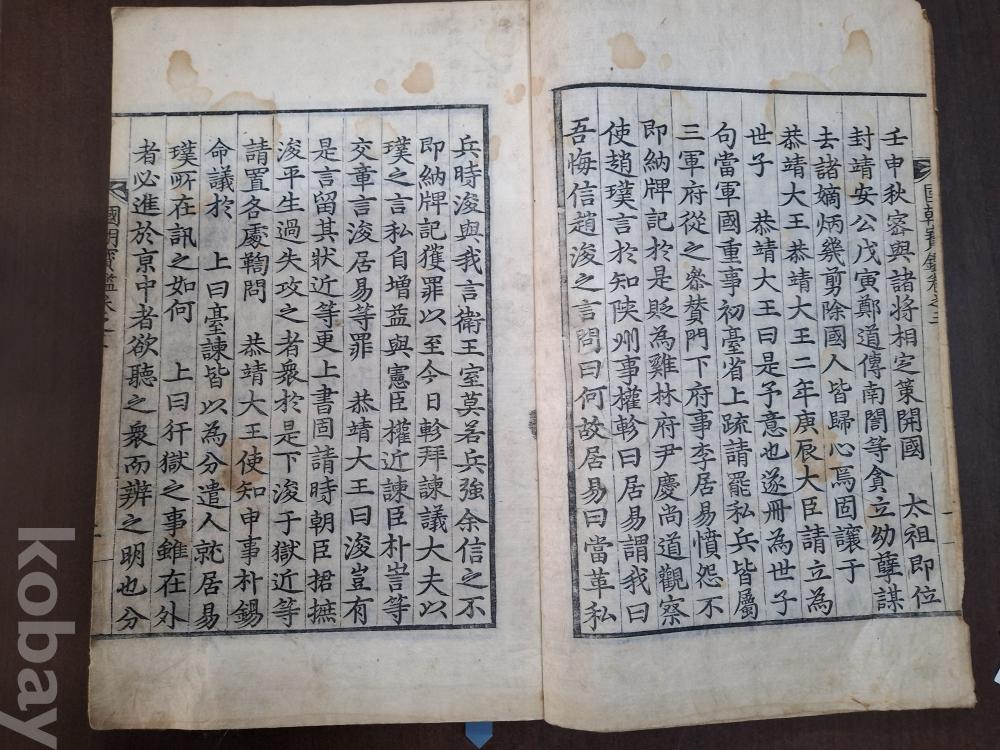 壬申秋密與諸將相定策開國 太祖即位
封靖安公戊寅鄭道傳南誾等貪立幼孽謀
去諸嫡炳幾剪除國人皆歸心焉固讓于
恭靖大王恭靖大王二年庚辰大臣請立為
世子 恭靖大王曰是予意也遂冊為世子
句當軍國重事初臺省上疏請罷私兵皆屬
三軍府從之叅賛門下府事李居易憤怨不
即納牌記於是貶為雞林府尹慶尚道觀察
使趙璞言於知陜州事權軫曰居易謂我曰
吾悔信趙浚之言問曰何故居易曰當革私
國朝寶鑑卷之三
兵時浚與我言衛王室莫若兵強余信之不
即納牌記獲罪以至今日軫拜諫議大夫以
璞之言私自增益與憲臣權近諫臣朴訔等
交章言浚居易等罪 恭靖大王曰浚豈有
是言留其狀近等更上書固請時朝臣捃摭
浚平生過失攻之者衆於是下浚于獄近等
請置各處鞫問 恭靖大王使知申事朴錫
命議於 上曰臺諫皆以為分遣人就居易
璞所在訊之如何 上曰犴獄之事雖在外
者必進於京中者欲聽之衆而辨之明也分
國朝寶鑑卷之
kobay